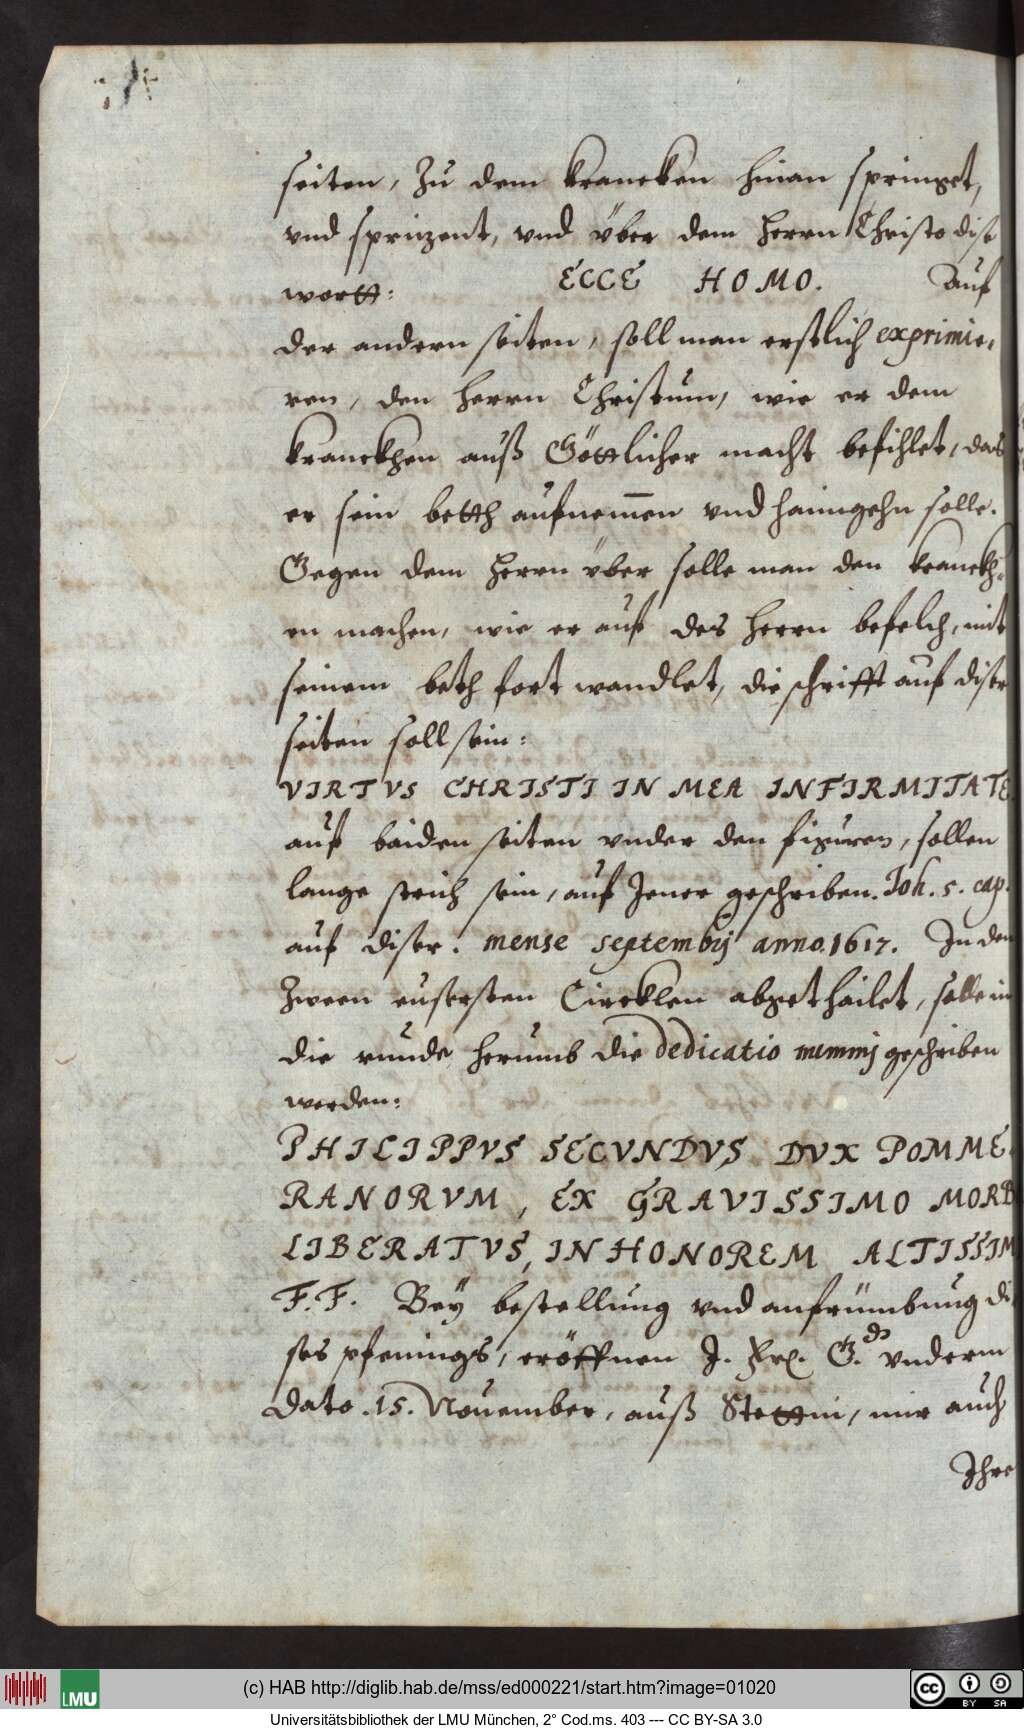 seiten, Zu dem krancken hinan springet,
vnd springent, vnd über dem herrn Christo dise
wortt: ECCE HOMO. Auf
der andern seiten, soll man erstlich exprimie,
ren, den herrn Christum, wie er dem
kranckhen auß Göttlicher macht befihlet, das
er sein betth aufnemen vnd haimgehn solle.
Gegen dem herrn über solle man den kranckh,
en machen, wie er auf des herrn befelch, mit
seinem beth fort wandlet, die schrifft auf diser
seiten soll sein:
VIRTVS CHRISTI IN MEA INFIRMITATE.
auf baiden seiten vnder den figuren, sollen
lange strich sein, auf Jener geschriben. Joh. 5. cap.
auf diser. mense septembrj anno. 1617. In den
Zween eusersten Circklen abgethailet, solle in
die runde herumb die dedicatio nummj geschriben
werden:
PHILIPPVS SECVNDVS DVX POMME,
RANORVM, EX GRAVISSIMO MORB
LIBERATVS, IN HONOREM ALTISSIM
F. F. Bey bestellung vnd anfrümbung di
ses pfenings, eröffnen J. Frl. G.dn vnderm
Dato .15. Nouember, auß Stettin, mir auch
Ihre
(c) HAB http://diglib.hab.de/mss/ed000221/start.htm?image=01020
LMU
cc BY SA
Universitätsbibliothek der LMU München, 2° Cod.ms. 403 --- CC BY-SA 3.0